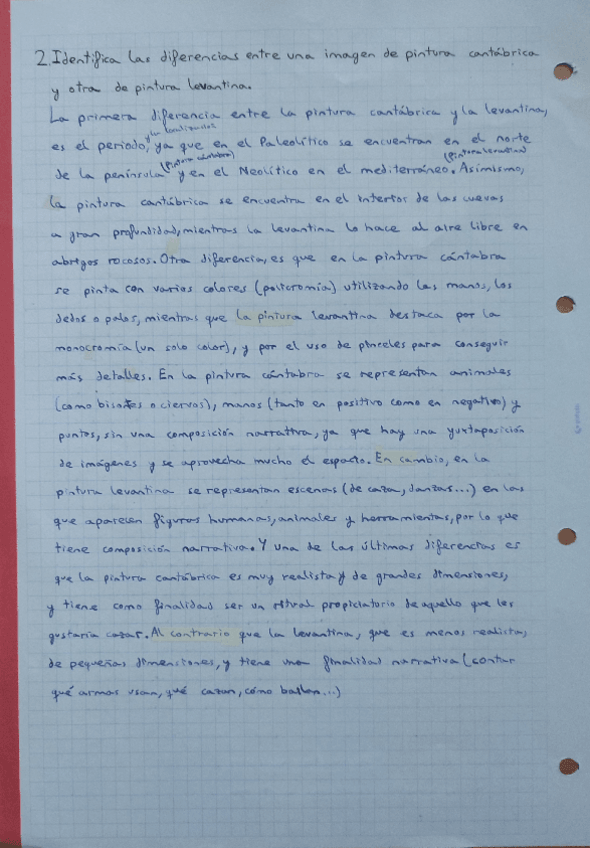 2. Identifica las diferencias entre una imagen de pintura cantábrica
y otra de pintura levantina.
La primera diferencia entre la pintura cantábrica y la levantina,
y la localización
es el periodo, ya que en el Paleolítico se encuentran en el norte
(pintura cantábrica) (pintura levantina)
de la península y en el Neolítico en el mediterráneo. Asimismo,
la pintura cantábrica se encuentra en el interior de las cuevas
a gran profundidad, mientras la levantina lo hace al aire libre en
abrigos rocosos. Otra diferencia, es que en la pintura cántabra
se pinta con varios colores (policromía) utilizando las manos, los
dedos o palos, mientras que la pintura levantina destaca por la
monocromía (un solo color), y por el uso de pinceles para conseguir
más detalles. En la pintura cántabra se representan animales
(como bisontes o ciervos), manos (tanto en positivo como en negativo) y
puntos, sin una composición narrativa, ya que hay una yuxtaposición
de imágenes y se aprovecha mucho el espacio. En cambio, en la
pintura levantina se representan escenas (de caza, danzas...) en las
que aparecen figuras humanas, animales y herramientas, por lo que
tiene composición narrativa. Y una de las últimas diferencias es
que la pintura cantábrica es muy realista y de grandes dimensiones,
y tiene como finalidad ser un ritual propiciatorio de aquello que les
gustaría cazar. Al contrario que la levantina, que es menos realista,
de pequeñas dimensiones, y tiene una finalidad narrativa (contar
qué armas usan, qué cazan, cómo bailan...)